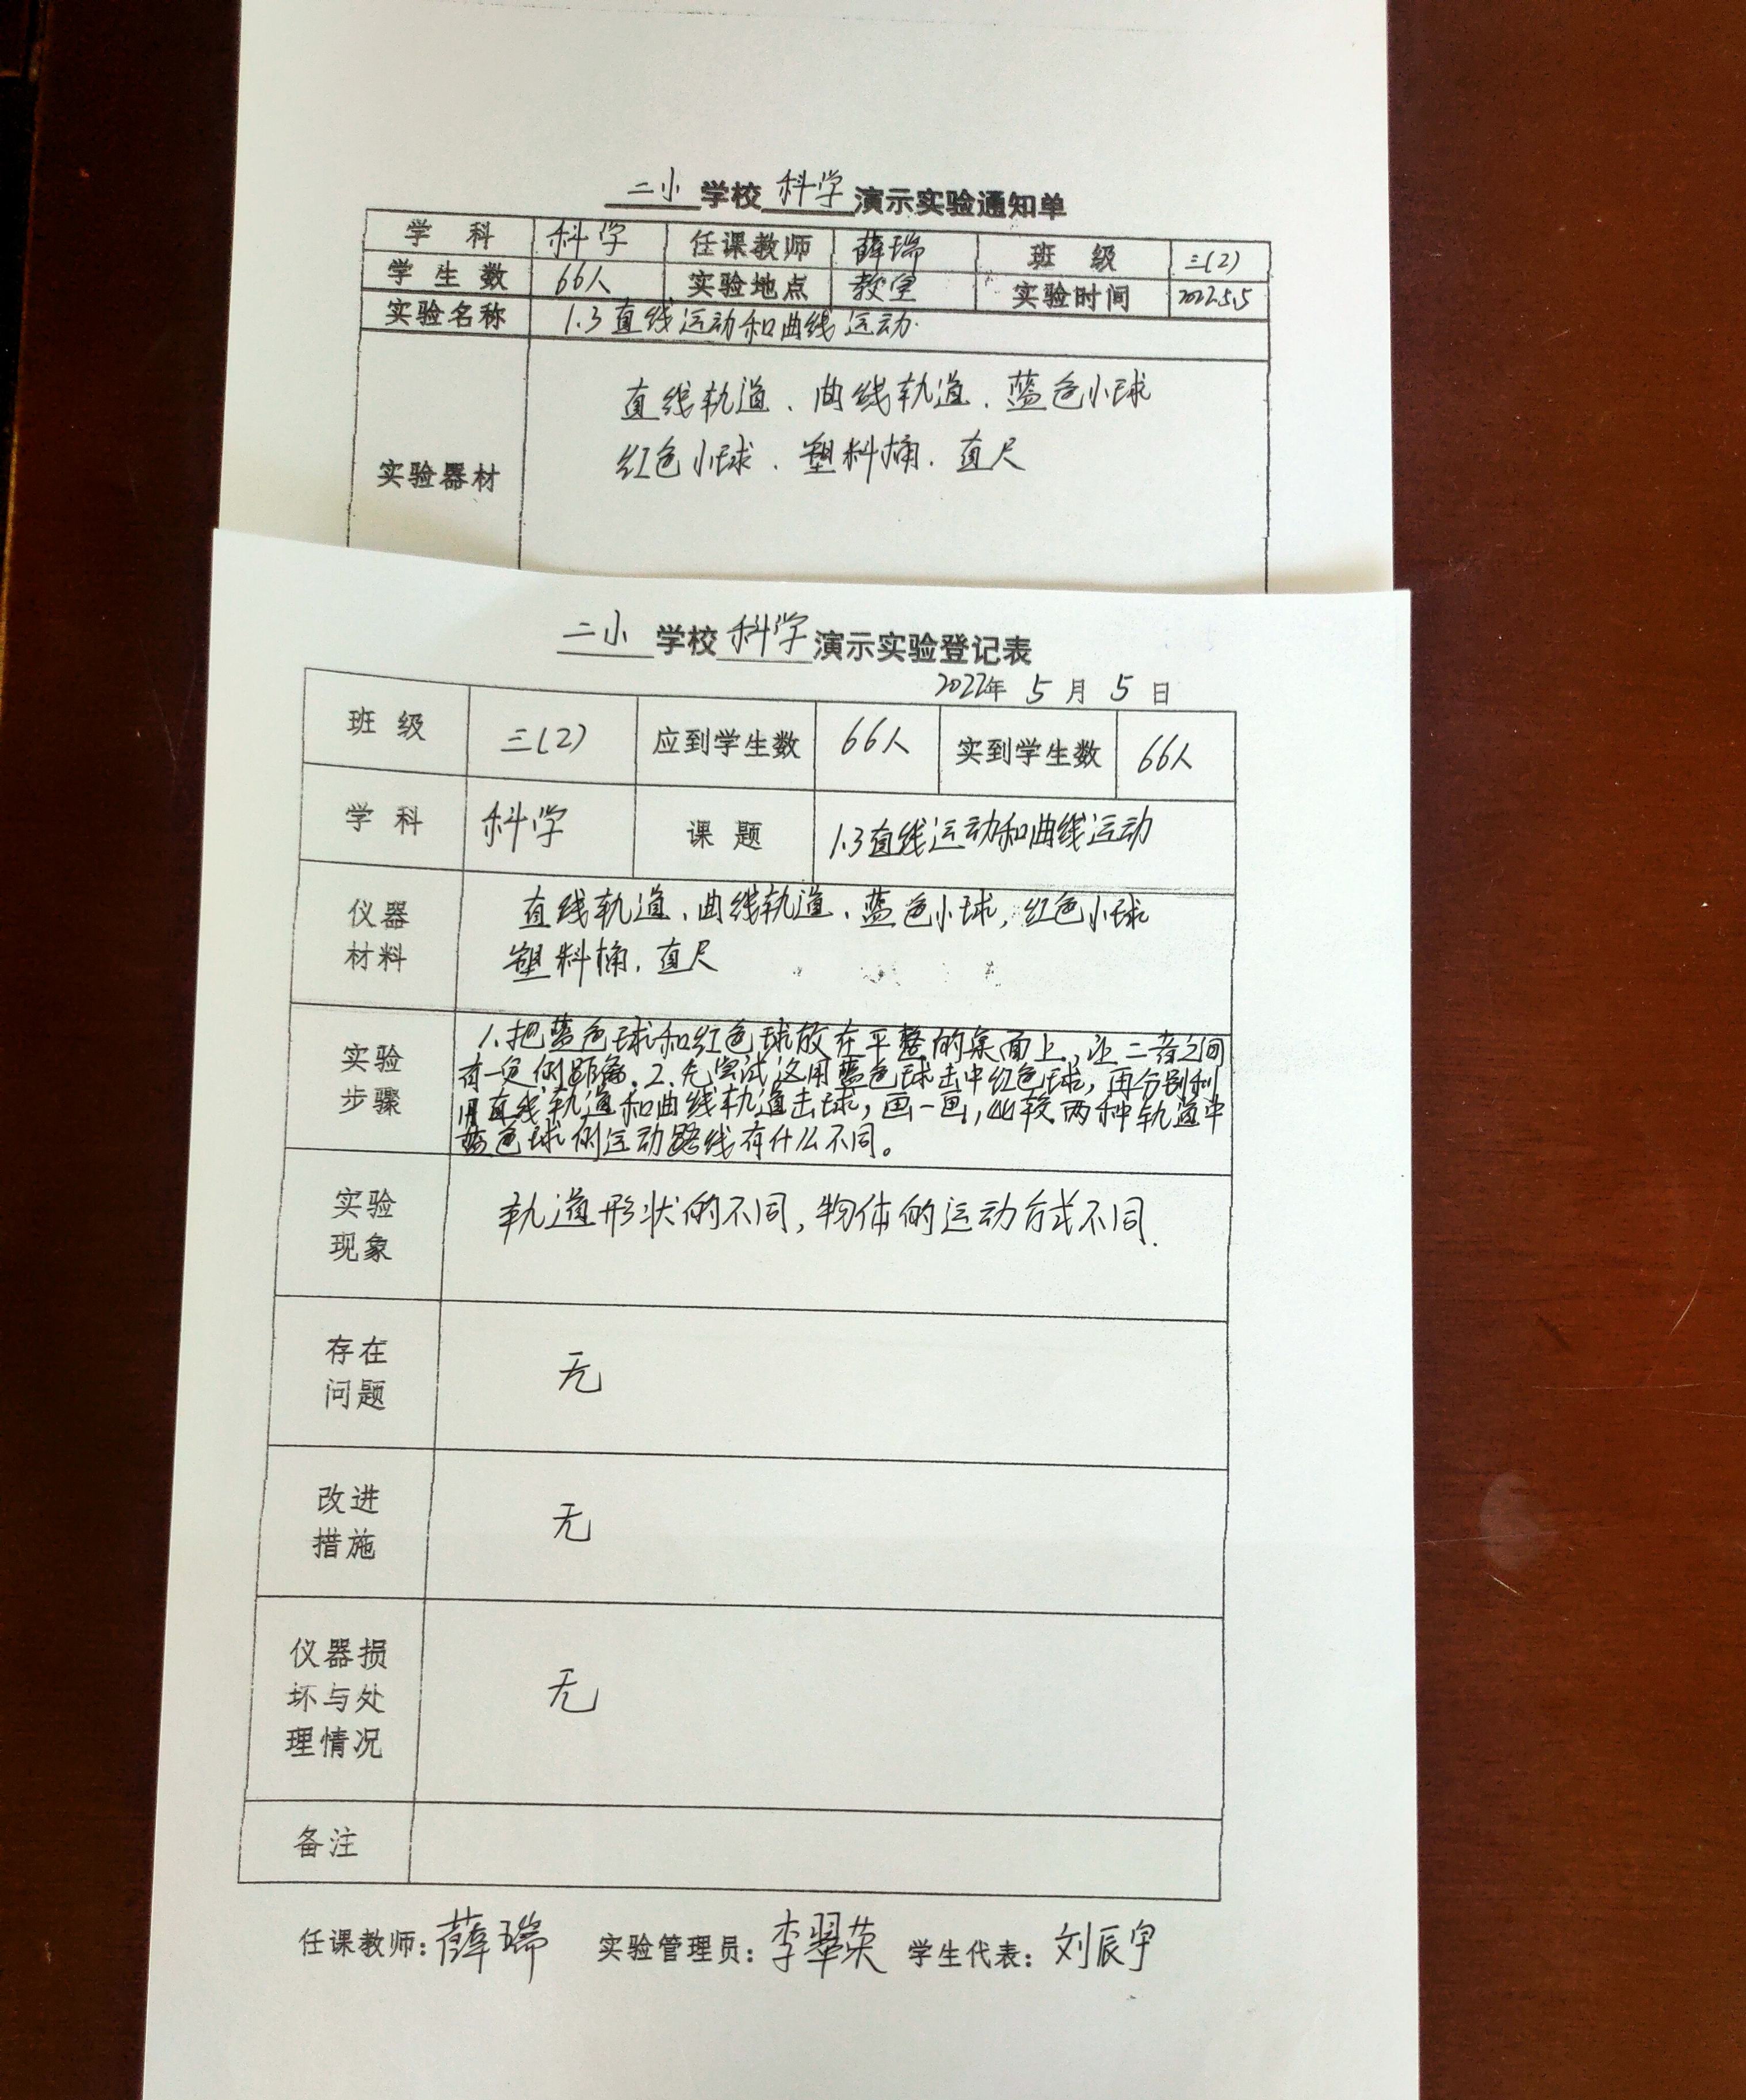 二小学校科学演示实验通知单
学科 科学 任课教师 薛瑞 班级 三(2)
学生数 66人 实验地点 教室 实验时间 2022.5.5
实验名称 1.3直线运动和曲线运动.
实验器材 直线轨道、曲线轨道、蓝色小球
红色小球、塑料桶、直尺
二小学校科学演示实验登记表
2022年5月5日
班级 三(2) 应到学生数 66人 实到学生数 66人
学科 科学 课题 1.3直线运动和曲线运动
仪器材料 直线轨道、曲线轨道、蓝色小球,红色小球
塑料桶、直尺
实验步骤 1.把蓝色球和红色球放在平整的桌面上,让二者之间
有一定的距离.2.先尝试这用蓝色球击中红色球,再分别利
用直线轨道和曲线轨道击球,画一画,比较两种轨道中
蓝色球的运动路线有什么不同。
实验现象 轨道形状的不同,物体的运动方式不同.
存在问题 无
改进措施 无
仪器损坏与处理情况 无
备注
任课教师:薛瑞 实验管理员:李翠英 学生代表:刘辰宇